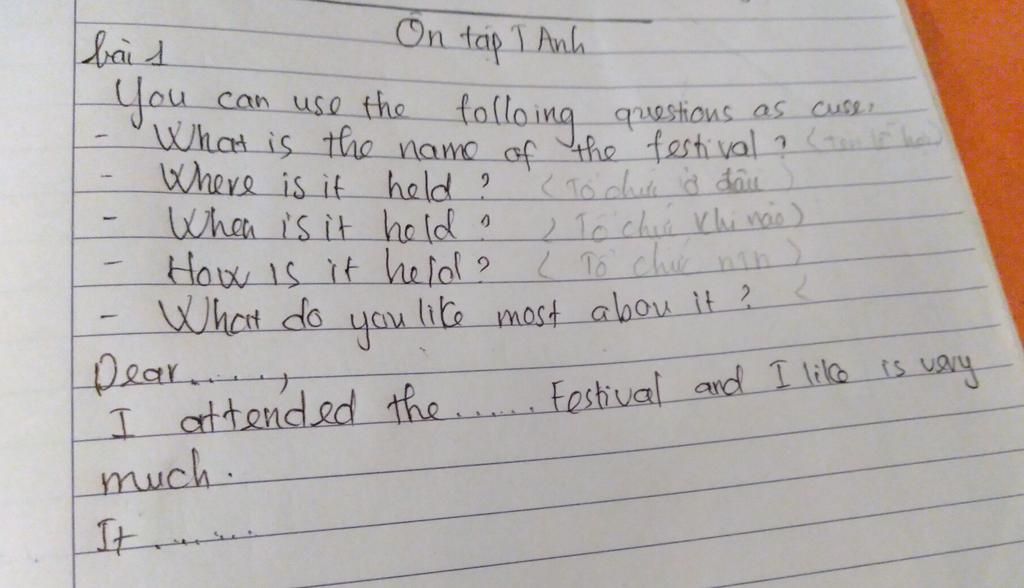 Ôn tập T Anh
bài 1
You can use the folloing questions as cuse,
- What is the name of the festival ? (Tên lễ hội)
- Where is it held ? (Tổ chức ở đâu)
- When is it held ? (Tổ chức khi nào)
- How is it held ? (Tổ chức ntn)
- What do you like most abou it ? (
Dear ......,
I attended the ...... Festival and I like is very
much.
It .......